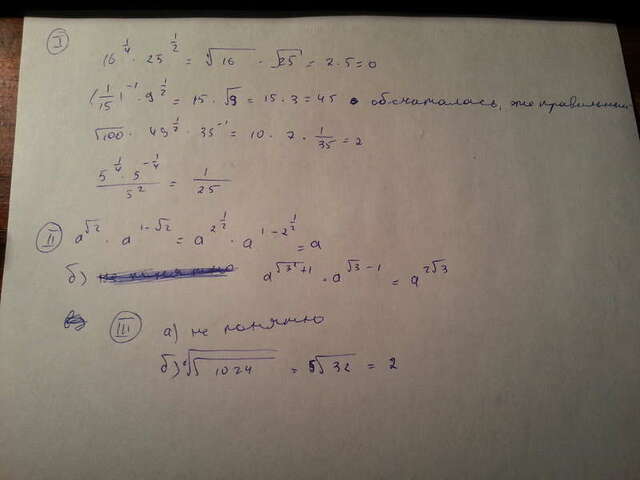 I
16^(1/4) · 25^(1/2) = ∜16 · √25 = 2·5=0
(1/15)^(-1) · 9^(1/2) = 15 · √9 = 15 · 3 = 45 обсчаталась, это правильный
√100 · 49^(1/2) · 35^(-1) = 10 · 7 · 1/35 = 2
(5^(1/4) · 5^(-1/4))/5^2 = 1/25
II a^(√2) · a^(1-√2) = a^(2^(1/2)) · a^(1-2^(1/2)) = a
б) a^(√3+1) · a^(√3-1) = a^(2√3)
III а) не понятно
б) √√1024 = 5√32 = 2